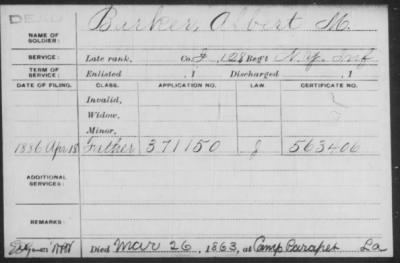 DEAD
NAME OF SOLDIER: Barker, Albert M.
SERVICE: Late rank, Co. F, 128 Reg't N.Y. Inf
TERM OF SERVICE: Enlisted , 1 Discharged , 1
DATE OF FILING. CLASS. APPLICATION NO. LAW. CERTIFICATE NO.
Invalid,
Widow,
Minor,
1886 Apr 18 Father 371150 J 563406
ADDITIONAL SERVICES:
REMARKS:
Died Mar 26, 1863, at Camp Parapet La